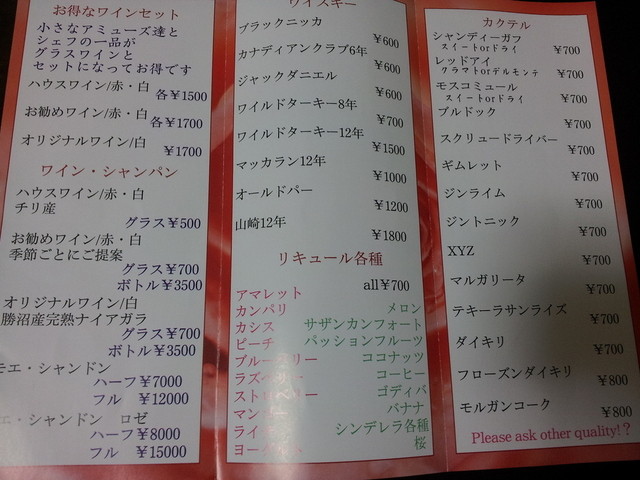 お得なワインセット
小さなアミューズ達と
シェフの一品が
グラスワインと
セットになってお得です
ハウスワイン/赤・白
各¥1500
お勧めワイン/赤・白
各¥1700
オリジナルワイン/白
¥1700
ワイン・シャンパン
ハウスワイン/赤・白
チリ産
グラス¥500
お勧めワイン/赤・白
季節ごとにご提案
グラス¥700
ボトル¥3500
オリジナルワイン/白
勝沼産完熟ナイアガラ
グラス¥700
ボトル¥3500
モエ・シャンドン
ハーフ¥7000
フル ¥12000
エ・シャンドン ロゼ
ハーフ¥8000
フル ¥15000
ウイスキー
ブラックニッカ
¥600
カナディアンクラブ6年
¥600
ジャックダニエル
¥600
ワイルドターキー8年
¥700
ワイルドターキー12年
¥1500
マッカラン12年
¥1000
オールドパー
¥1200
山崎12年
¥1800
リキュール各種
all¥700
アマレット
カンパリ メロン
カシス サザンカンフォート
ピーチ パッションフルーツ
ブルーベリー ココナッツ
ラズベリー コーヒー
ストロベリー ゴディバ
マンゴー バナナ
ライ シンデレラ各種
ヨー 桜
カクテル
シャンディーガフ
スイートorドライ ¥700
レッドアイ
クラマトorデルモンテ ¥700
モスコミュール
スイートorドライ ¥700
ブルドック
¥700
スクリュードライバー
¥700
ギムレット
¥700
ジンライム
¥700
ジントニック
¥700
XYZ
¥700
マルガリータ
¥700
テキーラサンライズ
¥700
ダイキリ
¥700
フローズンダイキリ
¥800
モルガンコーク
¥800
Please ask other quality!?